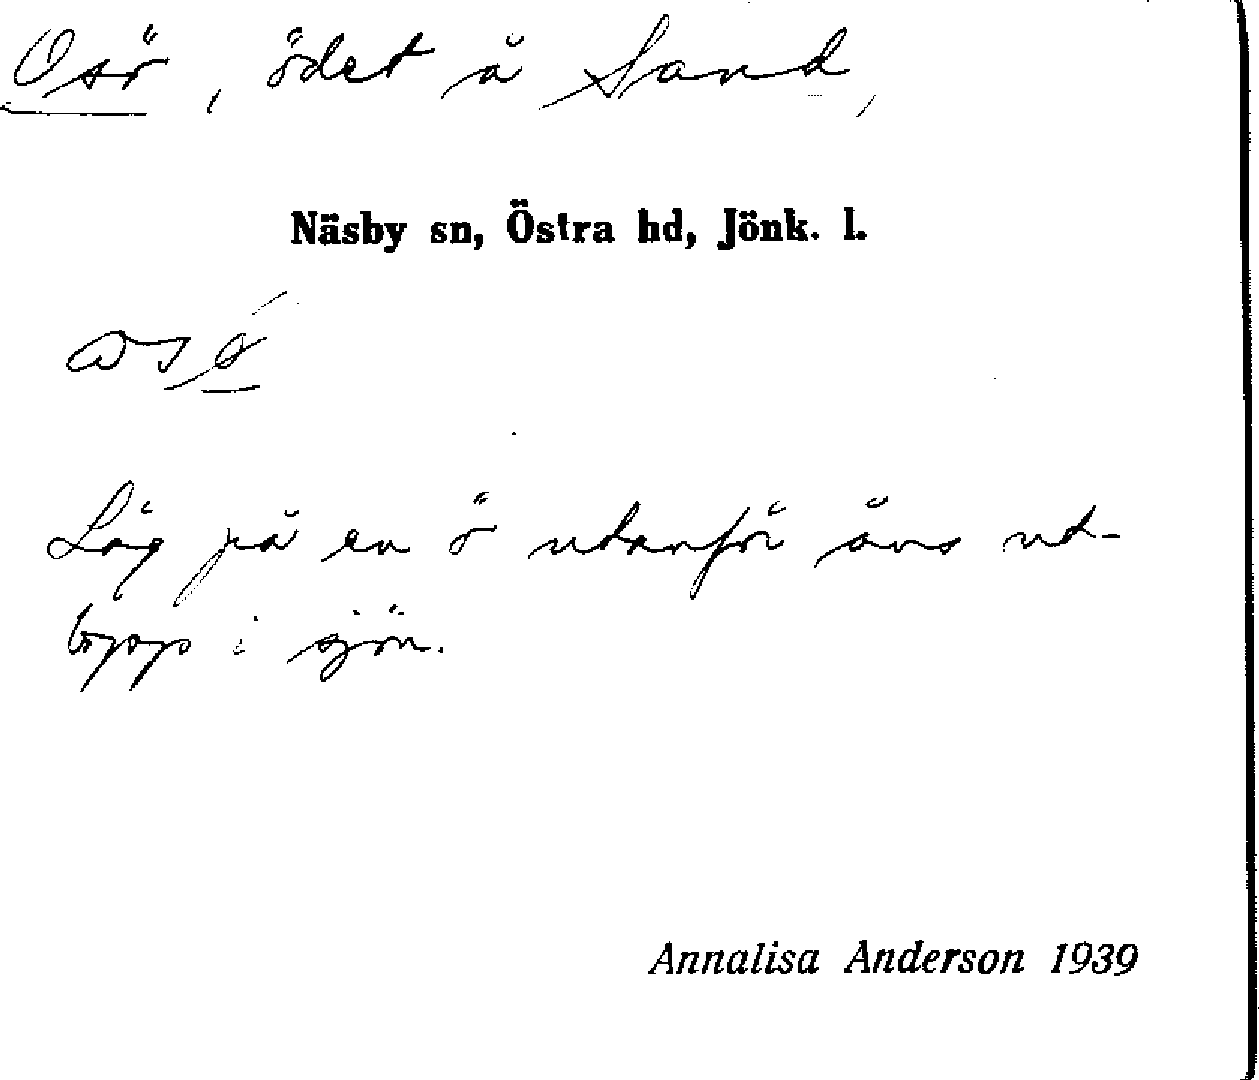 Osö, ödet å Sand,
Näsby sn, Östra hd, Jönk. l.
Låg på en ö utanför åns ut-
lopp i sjön.
Annalisa Anderson 1939